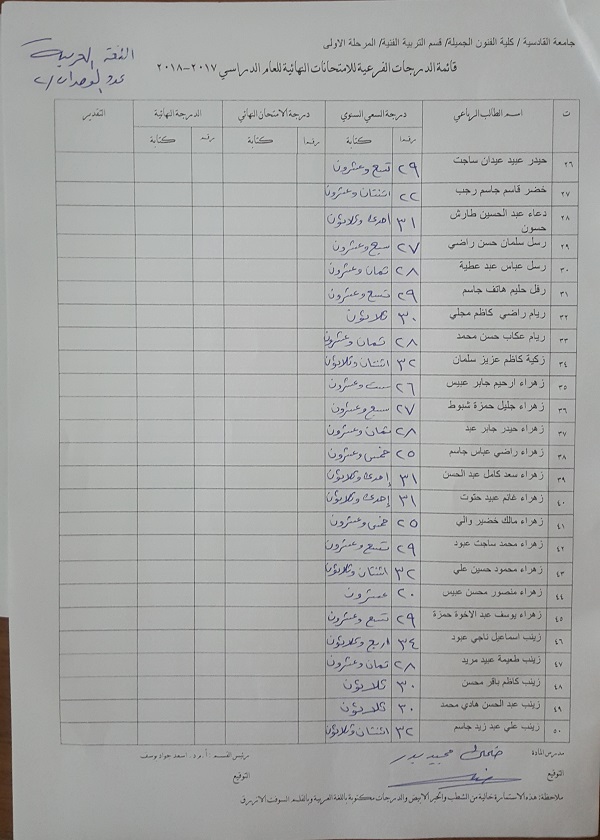 جامعة القادسية / كلية الفنون الجميلة/ قسم التربية الفنية/ المرحلة الاولى
اللغة العربية
قائمة الدرجات الفرعية للامتحانات النهائية للعام الدراسي ٢٠١٧-٢٠١٨
عدد الوحدات /٢
ت اسم الطالب الرباعي درجة السعي السنوي درجة الامتحان النهائي الدرجة النهائية التقدير
رقما كتابة رقما كتابة رقما كتابة
٢٦ حيدر عبيد عيدان ساجت ٢٩ تسع وعشرون
٢٧ خضر قاسم جاسم رجب ٢٢ اثنتان وعشرون
٢٨ دعاء عبد الحسين طارش حسون ٣١ احدى وثلاثون
٢٩ رسل سلمان حسن راضي ٢٧ سبع وعشرون
٣٠ رسل عباس عبد عطية ٢٨ ثمان وعشرون
٣١ رفل حليم هاتف جاسم ٢٩ تسع وعشرون
٣٢ ريام راضي كاظم مجلي ٣٠ ثلاثون
٣٣ ريام عكاب حسن محمد ٢٨ ثمان وعشرون
٣٤ زكية كاظم عزيز سلمان ٣٢ اثنتان وثلاثون
٣٥ زهراء ارحيم جابر عبيس ٢٦ ست وعشرون
٣٦ زهراء جليل حمزة شبوط ٢٧ سبع وعشرون
٣٧ زهراء حيدر جابر عبد ٢٨ ثمان وعشرون
٣٨ زهراء راضي عباس جاسم ٢٥ خمس وعشرون
٣٩ زهراء سعد كامل عبد الحسن ٣١ إحدى وثلاثون
٤٠ زهراء غانم عبيد حتوت ٣١ إحدى وثلاثون
٤١ زهراء مالك خضير والي ٢٥ خمس وعشرون
٤٢ زهراء محمد ساجت عبود ٢٩ تسع وعشرون
٤٣ زهراء محمود حسين علي ٣٢ اثنتان وثلاثون
٤٤ زهراء منصور محسن عبيس ٢٠ عشرون
٤٥ زهراء يوسف عبد الاخوة حمزة ٢٩ تسع وعشرون
٤٦ زينب اسماعيل ناجي عبود ٣٤ اربع وثلاثون
٤٧ زينب طعيمة عبيد مريد ٢٨ ثمان وعشرون
٤٨ زينب كاظم باقر محسن ٣٠ ثلاثون
٤٩ زينب عبد الحسن هادي محمد ٣٠ ثلاثون
٥٠ زينب علي عبد زيد جاسم ٣٢ اثنتان وثلاثون
مدرس المادة رئيس القسم : أ.م.د. اسعد جواد يوسف
التوقيع التوقيع
ملاحظة: هذه الاستمارة خالية من الشطب والحبر الابيض والدرجات مكتوبة باللغة العربية وبالقلم السوفت الازرق